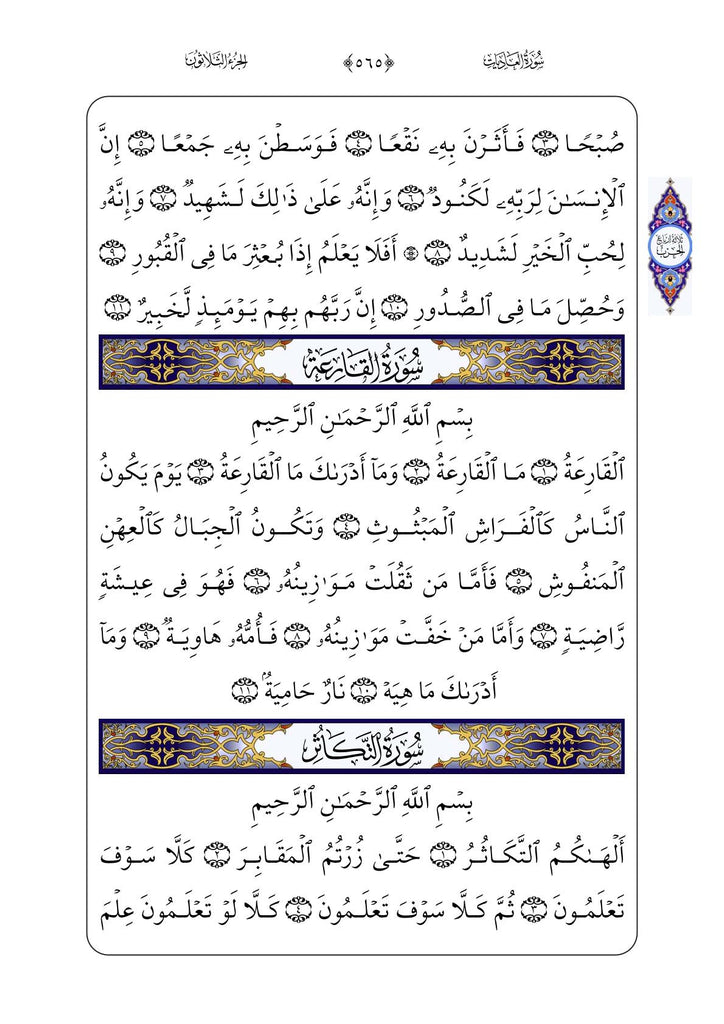 سُورَةُ العَادِيَات
﴿٥٦٥﴾
الجُزءُ الثَّلَاثُونَ
صُبْحًا ٣ فَأَثَرْنَ بِهِۦ نَقْعًا ٤ فَوَسَطْنَ بِهِۦ جَمْعًا ٥ إِنَّ
ٱلْإِنسَـٰنَ لِرَبِّهِۦ لَكَنُودٌ ٦ وَإِنَّهُۥ عَلَىٰ ذَٰلِكَ لَشَهِيدٌ ٧ وَإِنَّهُۥ
لِحُبِّ ٱلْخَيْرِ لَشَدِيدٌ ٨ ۞ أَفَلَا يَعْلَمُ إِذَا بُعْثِرَ مَا فِى ٱلْقُبُورِ ٩
ثلاثة أرباع
الحزب
وَحُصِّلَ مَا فِى ٱلصُّدُورِ ١٠ إِنَّ رَبَّهُم بِهِمْ يَوْمَئِذٍ لَّخَبِيرٌ ١١
سُورَةُ القَارِعَةِ
بِسْمِ ٱللَّهِ ٱلرَّحْمَـٰنِ ٱلرَّحِيمِ
ٱلْقَارِعَةُ ١ مَا ٱلْقَارِعَةُ ٢ وَمَآ أَدْرَىٰكَ مَا ٱلْقَارِعَةُ ٣ يَوْمَ يَكُونُ
ٱلنَّاسُ كَٱلْفَرَاشِ ٱلْمَبْثُوثِ ٤ وَتَكُونُ ٱلْجِبَالُ كَٱلْعِهْنِ
ٱلْمَنفُوشِ ٥ فَأَمَّا مَن ثَقُلَتْ مَوَٰزِينُهُۥ ٦ فَهُوَ فِى عِيشَةٍ
رَّاضِيَةٍ ٧ وَأَمَّا مَنْ خَفَّتْ مَوَٰزِينُهُۥ ٨ فَأُمُّهُۥ هَاوِيَةٌ ٩ وَمَآ
أَدْرَىٰكَ مَا هِيَهْ ١٠ نَارٌ حَامِيَةٌۢ ١١
سُورَةُ التَّكَاثُرِ
بِسْمِ ٱللَّهِ ٱلرَّحْمَـٰنِ ٱلرَّحِيمِ
أَلْهَىٰكُمُ ٱلتَّكَاثُرُ ١ حَتَّىٰ زُرْتُمُ ٱلْمَقَابِرَ ٢ كَلَّا سَوْفَ
تَعْلَمُونَ ٣ ثُمَّ كَلَّا سَوْفَ تَعْلَمُونَ ٤ كَلَّا لَوْ تَعْلَمُونَ عِلْمَ